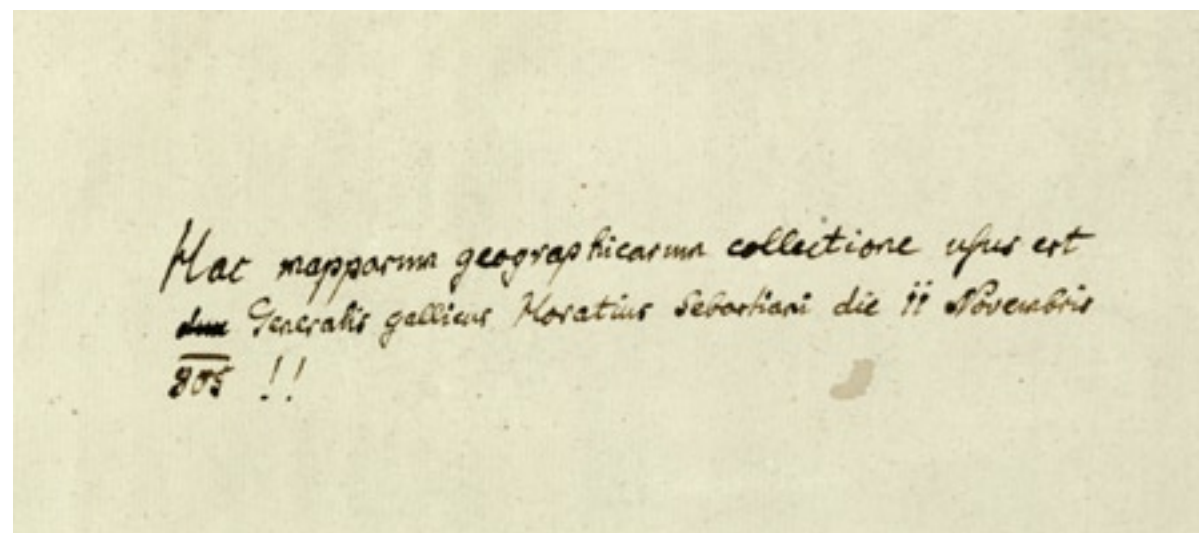 Hac mapparum geographicarum collectione usus est
Generalis gallicus Horatius Sebastiani die ii Novembris
805 !!